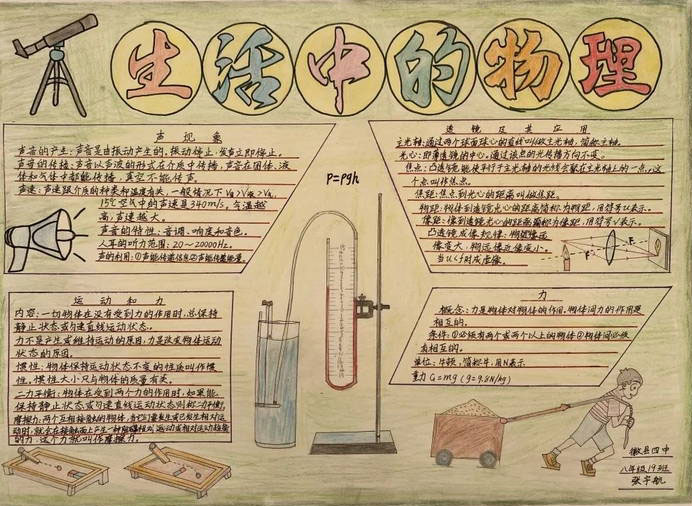 生活中的物理
声现象
声音的产生:声音是由振动产生的,振动停止,发声立即停止。
声音的传播:声音以声波的形式在介质中传播,声音在固体、液
体和气体中都能传声,真空不能传声。
声速:声速跟介质的种类和温度有关,一般情况下V固>V液>V气。
15℃空气中的声速是340m/s,气温越
高,声速越大。
声音的特性:音调、响度和音色。
人耳的听力范围:20~20000Hz。
声的利用:①声能传递信息②声能传递能量。
透镜及其应用
主光轴:通过两个球面球心的直线叫做主光轴,简称主轴。
光心:即薄透镜的中心。通过该点的光传播方向不变。
焦点:凸透镜能使平行于主光轴的光线会聚在主光轴上的一点,这
个点叫作焦点。
焦距:焦点到光心的距离叫做焦距。
物距:物体到透镜光心的距离简称为物距,用符号U表示。
像距:像到透镜光心的距离简称为像距,用符号V表示。
凸透镜成像规律:物近像远
像变大,物远像近像变小。
当U<f时成虚像。
F
F
P=ρgh
运动和力
内容:一切物体在没有受到力的作用时,总保持
静止状态或匀速直线运动状态。
力不是产生或维持运动的原因,力是改变物体运动
状态的原因。
惯性:物体保持运动状态不变的性质叫作惯
性,惯性大小只与物体的质量有关。
二力平衡:物体在受到两个力的作用时,如果能
保持静止状态或匀速直线运动状态则称二力平衡。
摩擦力:两个互相接触的物体,当它们要发生或已发生相对运
动时,就会在接触面上产生一种阻碍相对运动或相对运动趋势
的力,这个力就叫作摩擦力。
力
概念:力是物体对物体的作用,物体间力的作用是
相互的。
条件:①必须有两个或两个以上的物体②物体间必须
有相互的。
单位:牛顿,简称牛,用N表示
重力 G=mg (g=9.8N/kg)
徽县四中
八年级19班
张宇航